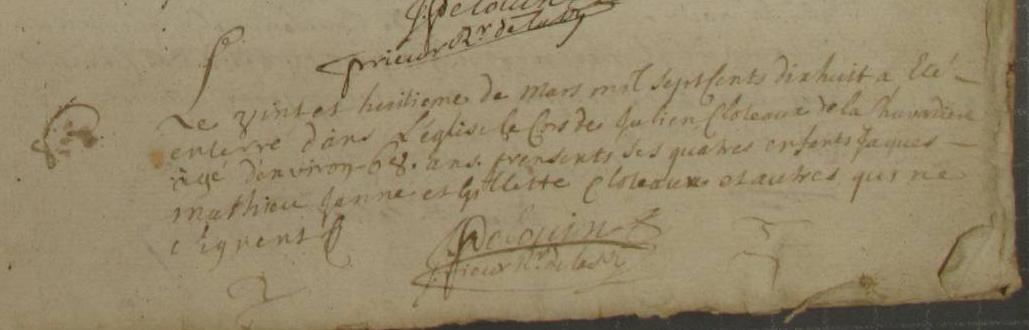 prieur Rr de
Le vint et huitieme de Mars mil sept sents dixhuit a Eté
enterré dans L'église le Cors de Julien Cloteaux de la
agé d'environ 68. ans. presents ses quatres enfents Jaques
Mathieu Janne et Gillette Cloteaux et autres qui ne
signent
prieur Rr de